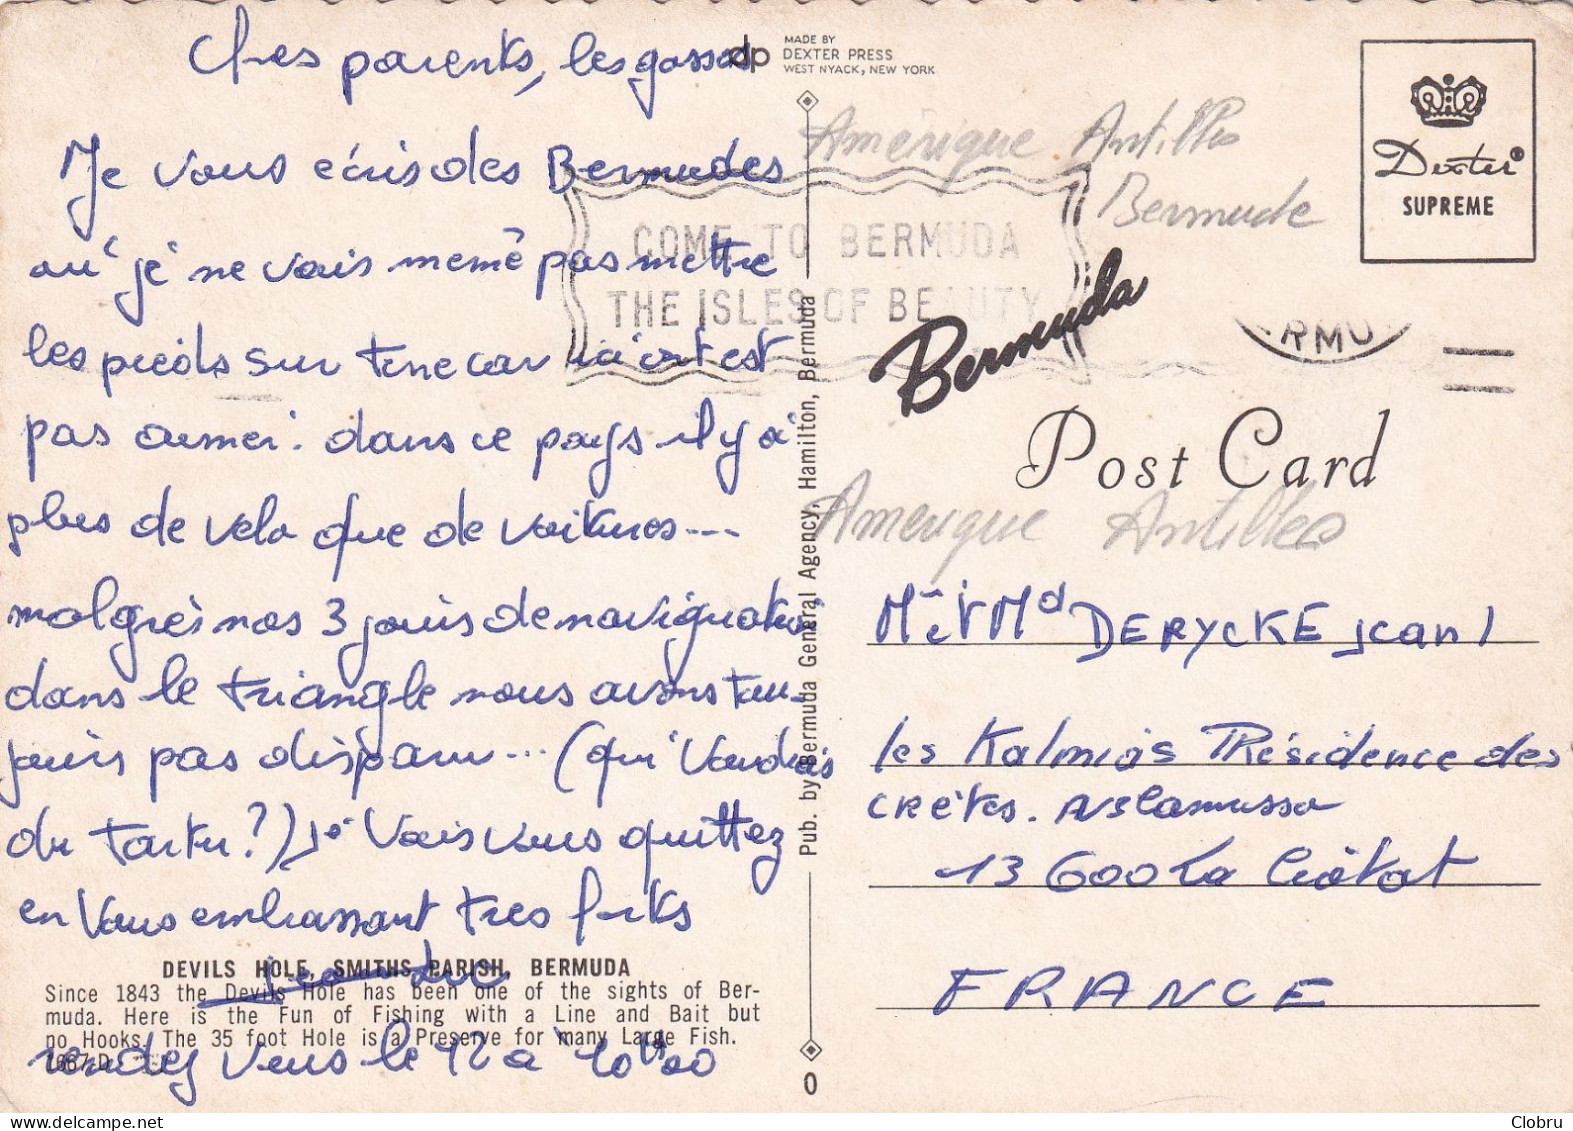 Chers parents, les gosses
Je vous écris des Bermudes
où je ne vais même pas mettre
les pieds sur terre car ici c'est
pas aimer. dans ce pays il y a
plus de velo que de voitures...
malgrès nos 3 jours de navigation
dans le triangle nous avons tou-
jours pas disparu... (qui voudrais
du tartu?) je vais vous quittez
en vous embrassant tres forts
Jean Luc
rendez vous le 12 a 20H00
DEVILS HOLE, SMITHS PARISH, BERMUDA
Since 1843 the Devils Hole has been one of the sights of Ber-
muda. Here is the Fun of Fishing with a Line and Bait but
no Hooks. The 35 foot Hole is a Preserve for many Large Fish.
1667-D
dp
MADE BY
DEXTER PRESS
WEST NYACK, NEW YORK
Pub. by Bermuda General Agency, Hamilton, Bermuda
0
Amérique Antilles
Bermude
COME TO BERMUDA
THE ISLES OF BEAUTY
Dexter®
SUPREME
RMU
Bermuda
Post Card
Amerique Antilles
Mr et Md DERYCKE jean l
les Kalmias Résidence des
CRètes.
13 600 La Ciotat
FRANCE
Clobru